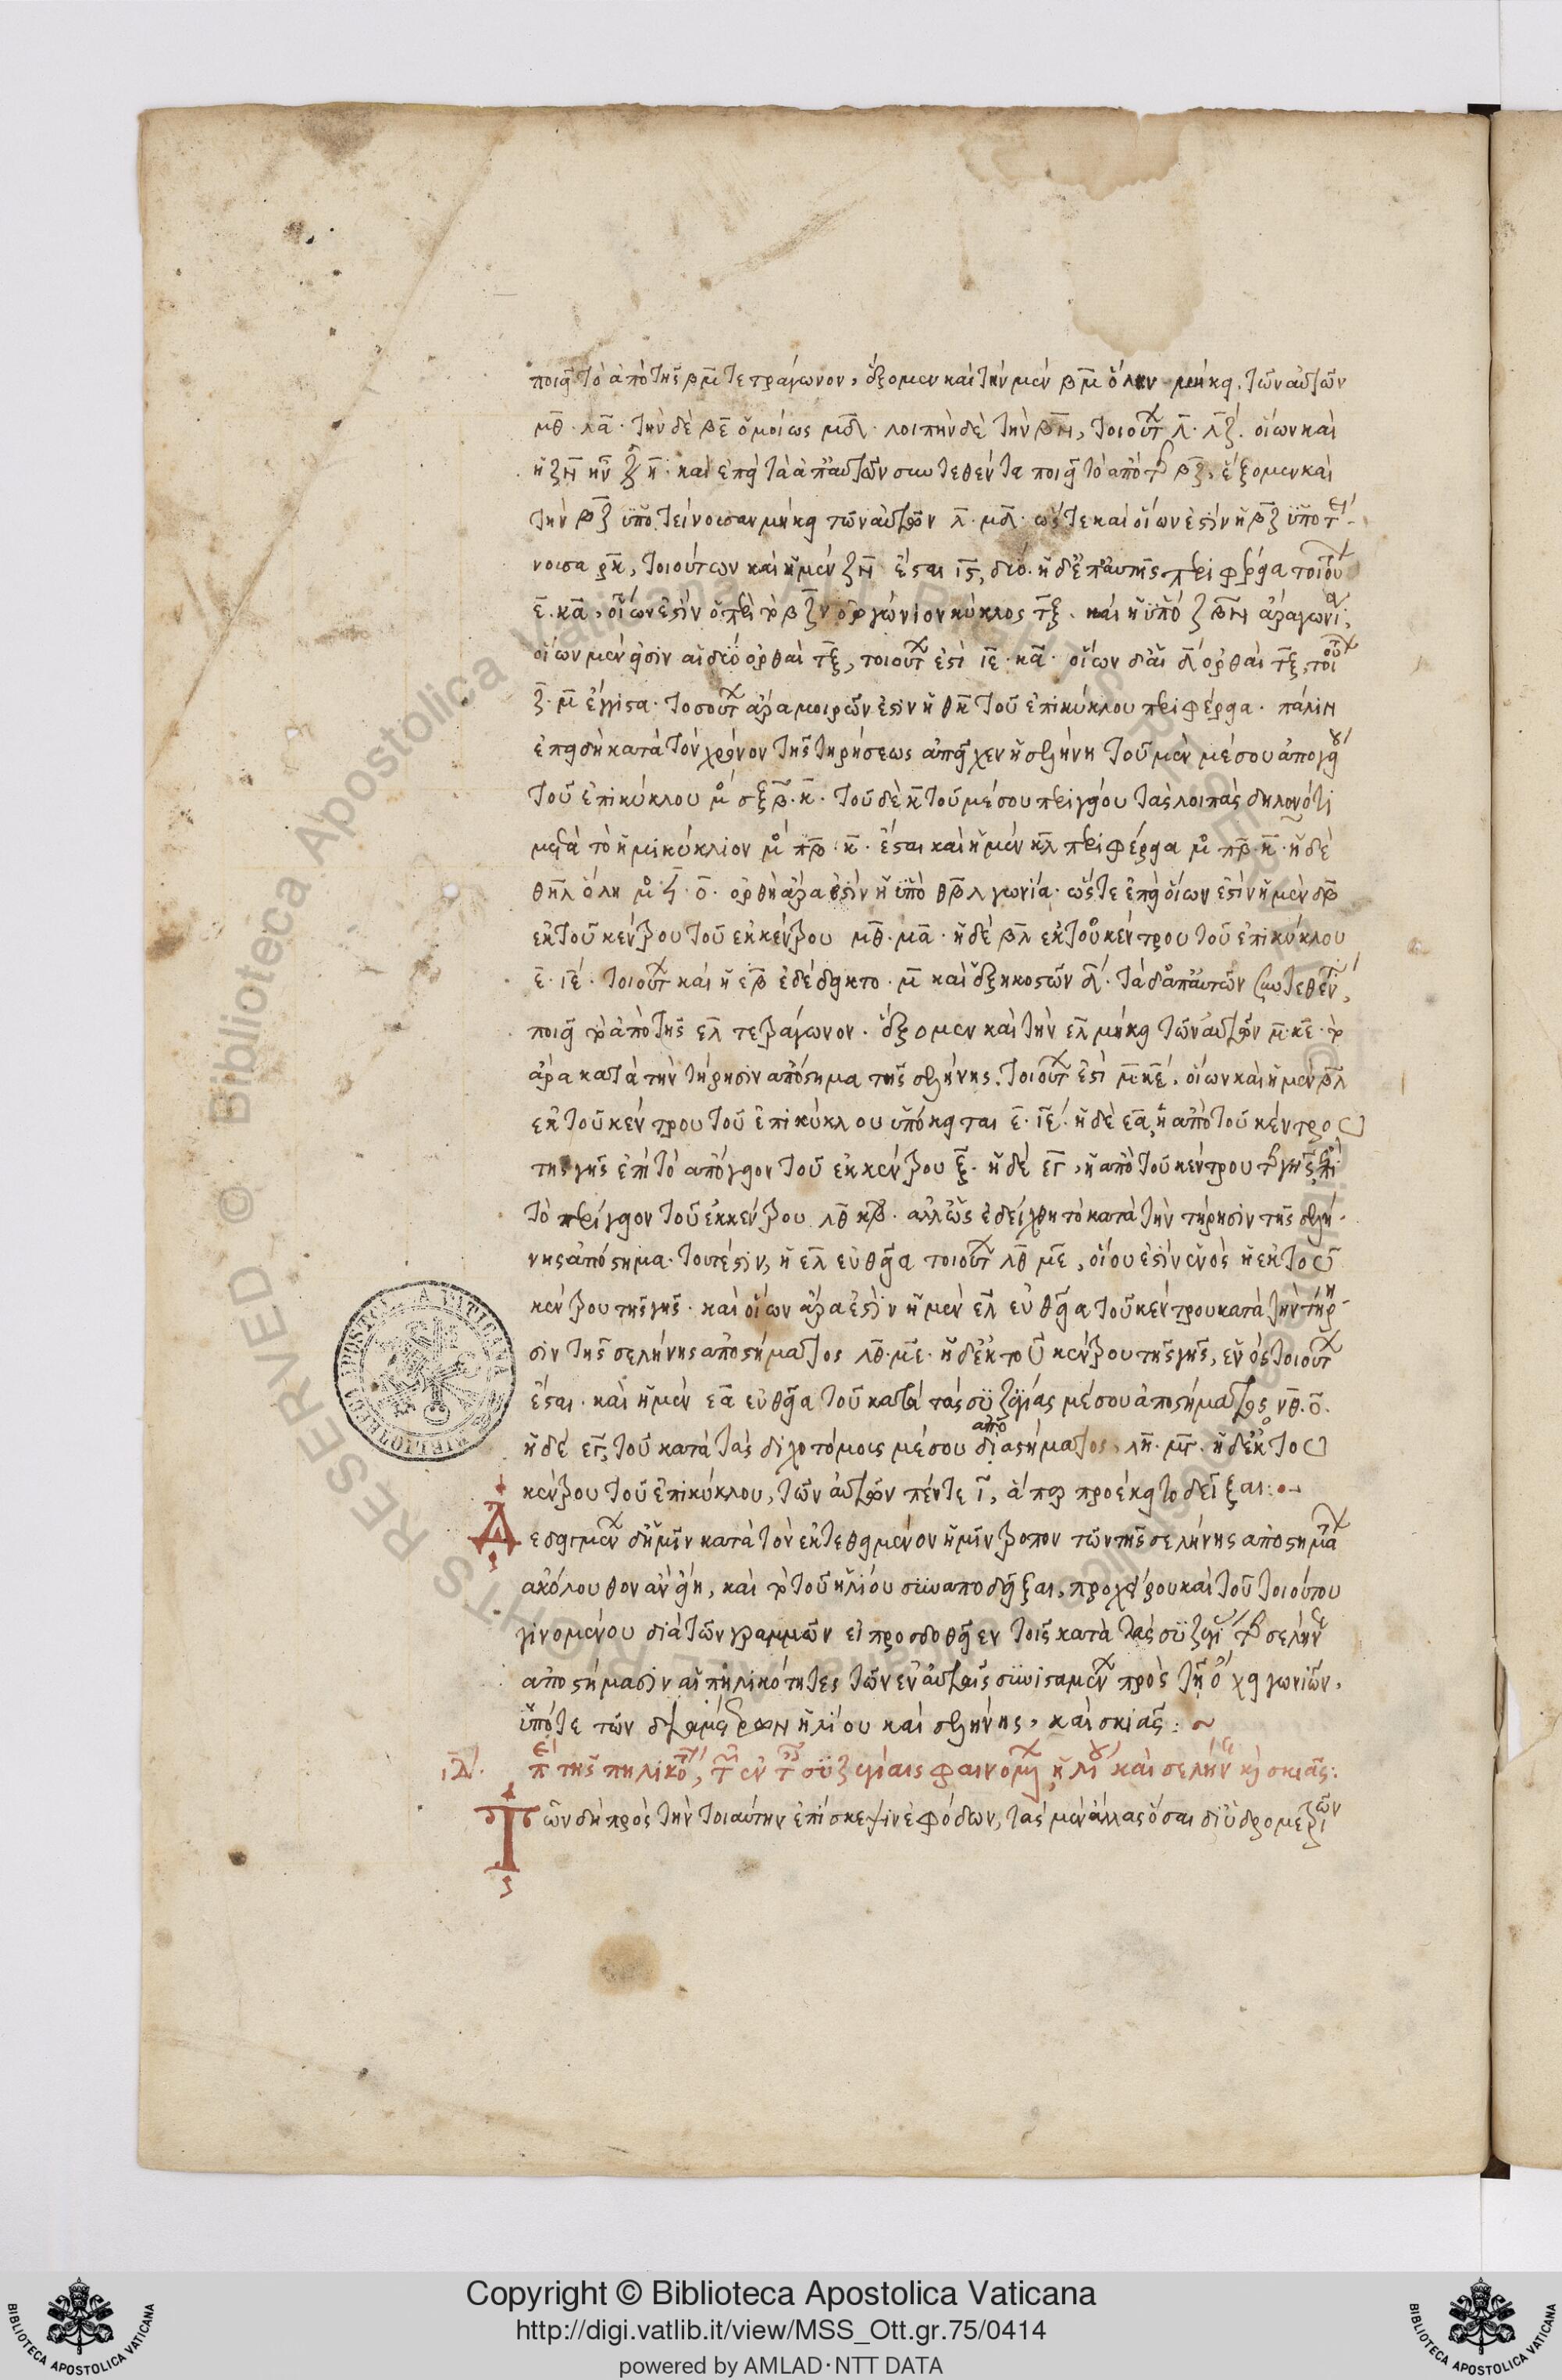 ποιεῖ τὸ ἀπὸ τῆς βμ̅ τετράγωνον, ἕξομεν καὶ τὴν μὲν βμ̅ ὅλην μήκει τῶν αὐτῶν
μθ̅ · λα̅ · τὴν δὲ βε̅ ὁμοίως μδ̅ · λοιπὴν δὲ τὴν βη̅, τοιούτ λ̅ · λζ̅. οἵων καὶ
ἡ ζη̅ ἦν · η̅ · καὶ ἐπεὶ τὰ ἀπ' αὐτῶν συντεθέντα ποιεῖ τὸ ἀπὸ τῆς βζ̅, ἕξομεν καὶ
τὴν βζ̅ ὑποτείνουσαν μήκει τῶν αὐτῶν λ̅ · μδ̅ · ὥστε καὶ οἵων ἐστὶν ἡ βζ̅ ὑποτεί
νουσα ρκ̅, τοιούτων καὶ ἡ μὲν ζη̅ ἔσται ις̅, δύο. ἡ δ' ἐπ' αὐτῆς περιφέρεια τοιού
ε̅ · κα̅, οἵων ἐστὶν ὁ περὶ τὸ βζη̅ ὀρθογώνιον κύκλος τξ̅. καὶ ἡ ὑπὸ ζβη̅ ἄρα γωνία,
οἵων μέν εἰσιν αἱ δύο ὀρθαὶ τξ̅, τοιούτ ἐστὶ ιε̅ · κα̅ · οἵων δ' αἱ δ̅ ὀρθαὶ τξ̅, τοιού
ζ̅ · μ̅ ἔγγιστα · τοσούτ ἄρα μοιρῶν ἐστιν ἡ θκ̅ τοῦ ἐπικύκλου περιφέρεια · πάλιν
ἐπειδὴ κατὰ τὸν χρόνον τῆς τηρήσεως ἀπεῖχεν ἡ σελήνη τοῦ μὲν μέσου ἀπογείου
τοῦ ἐπικύκλου μο σξβ̅ · κ̅ · τοῦ δὲ μέσου περιγείου τὰς λοιπὰς δηλονότι
μετὰ τὸ ἡμικύκλιον μο πβ̅ · κ̅ · ἔσται καὶ ἡ μὲν κλ̅ περιφέρεια μο πβ̅ · κ̅ · ἡ δὲ
θκλ̅ ὅλη μο ϟ̅ · ο̅ · ὀρθὴ ἄρα ἐστὶν ἡ ὑπὸ θβλ γωνία · ὥστε ἐπεὶ οἵων ἐστὶν ἡ μὲν δβ̅
ἐκ τοῦ κέντρου τοῦ ἐκκέντρου μθ̅ · μα̅ · ἡ δὲ βλ̅ ἐκ τοῦ κέντρου τοῦ ἐπικύκλου
ε̅ · ιε̅ · τοιούτ καὶ ἡ εβ̅ ἐδέδεικτο · μ̅ καὶ ἑξηκοστῶν δ̅ · τὰ δ' ἀπ' αὐτῶν συντεθέντ,
ποιεῖ τὸ ἀπὸ τῆς ελ̅ τετράγωνον · ἕξομεν καὶ τὴν ελ̅ μήκει τῶν αὐτῶν μ̅ · κε̅ · τὸ
ἄρα κατὰ τὴν τήρησιν ἀπόστημα τῆς σελήνης τοιούτ ἐστὶ μ̅ · κε̅. οἵων καὶ ἡ μὲν βλ̅
ἐκ τοῦ κέντρου τοῦ ἐπικύκλου ὑπόκειται ε̅ · ιε̅ · ἡ δὲ εα̅, ἡ ἀπὸ τοῦ κέντρου
τῆς γῆς ἐπὶ τὸ ἀπόγειον τοῦ ἐκκέντρου ξ̅ · ἡ δὲ εγ̅, ἡ ἀπὸ τοῦ κέντρου τῆς γῆς ἐπὶ
τὸ περίγειον τοῦ ἐκκέντρου λθ̅ κβ̅ · ἀλλ' ὡς ἐδείχθη τὸ κατὰ τὴν τήρησιν τῆς σελή
νης ἀπόστημα · τουτέστιν, ἡ ελ̅ εὐθεῖα τοιούτ λθ̅ με̅, οἵου ἐστὶν ἑνὸς ἡ ἐκ τοῦ
κέντρου τῆς γῆς · καὶ οἵων ἄρα ἐστὶν ἡ μὲν ελ̅ εὐθεῖα τοῦ κέντρου κατὰ τὴν τήρη
σιν τῆς σελήνης ἀποστήματος λθ̅ · με̅ · ἡ δ' ἐκ τοῦ κέντρου τῆς γῆς, ἑνός, τοιούτ
ἔσται · καὶ ἡ μὲν εα̅ εὐθεῖα τοῦ κατὰ τὰς συζυγίας μέσου ἀποστήματος νθ̅ · ο̅.
ἡ δὲ εγ̅, τοῦ κατὰ τὰς διχοτόμους μέσου διαστήματος, λη̅ · μγ̅ · ἡ δ' ἐκ τοῦ
κέντρου τοῦ ἐπικύκλου, τῶν αὐτῶν πέντε ι̅, ἅπερ προέκειτο δεῖξαι:
Δεδειγμένων δ' ἡμῖν κατὰ τὸν ἐκτεθειμένον ἡμῖν τρόπον τῶν τῆς σελήνης ἀποστημάτ
ἀκόλουθον ἂν εἴη, καὶ τὸ τοῦ ἡλίου συναποδεῖξαι, προχείρου καὶ τοῦ τοιούτου
γινομένου διὰ τῶν γραμμῶν εἰ προσδοθεῖεν τοῖς κατὰ τὰς συζυγί τῆς σελήν
ἀποστήμασιν αἱ πηλικότητες τῶν ἐν αὐταῖς συνισταμένων πρὸς τῇ ὄψει γωνιῶν,
ὑπό τε τῶν διαμέτρων ἡλίου καὶ σελήνης, καὶ σκιᾶς: ~
ιδ'. περὶ τῆς πηλικό, τ ἐν τ συζυγίαις φαινομ ἡλίου καὶ σελήνης κὶ σκιᾶς:
Τῶν δὴ πρὸς τὴν τοιαύτην ἐπίσκεψιν ἐφόδων, τὰς μὲν ἄλλας ὅσαι δι' ὑδρομετριῶν
Copyright © Biblioteca Apostolica Vaticana
http://digi.vatlib.it/view/MSS_Ott.gr.75/0414
powered by AMLAD·NTT DATA